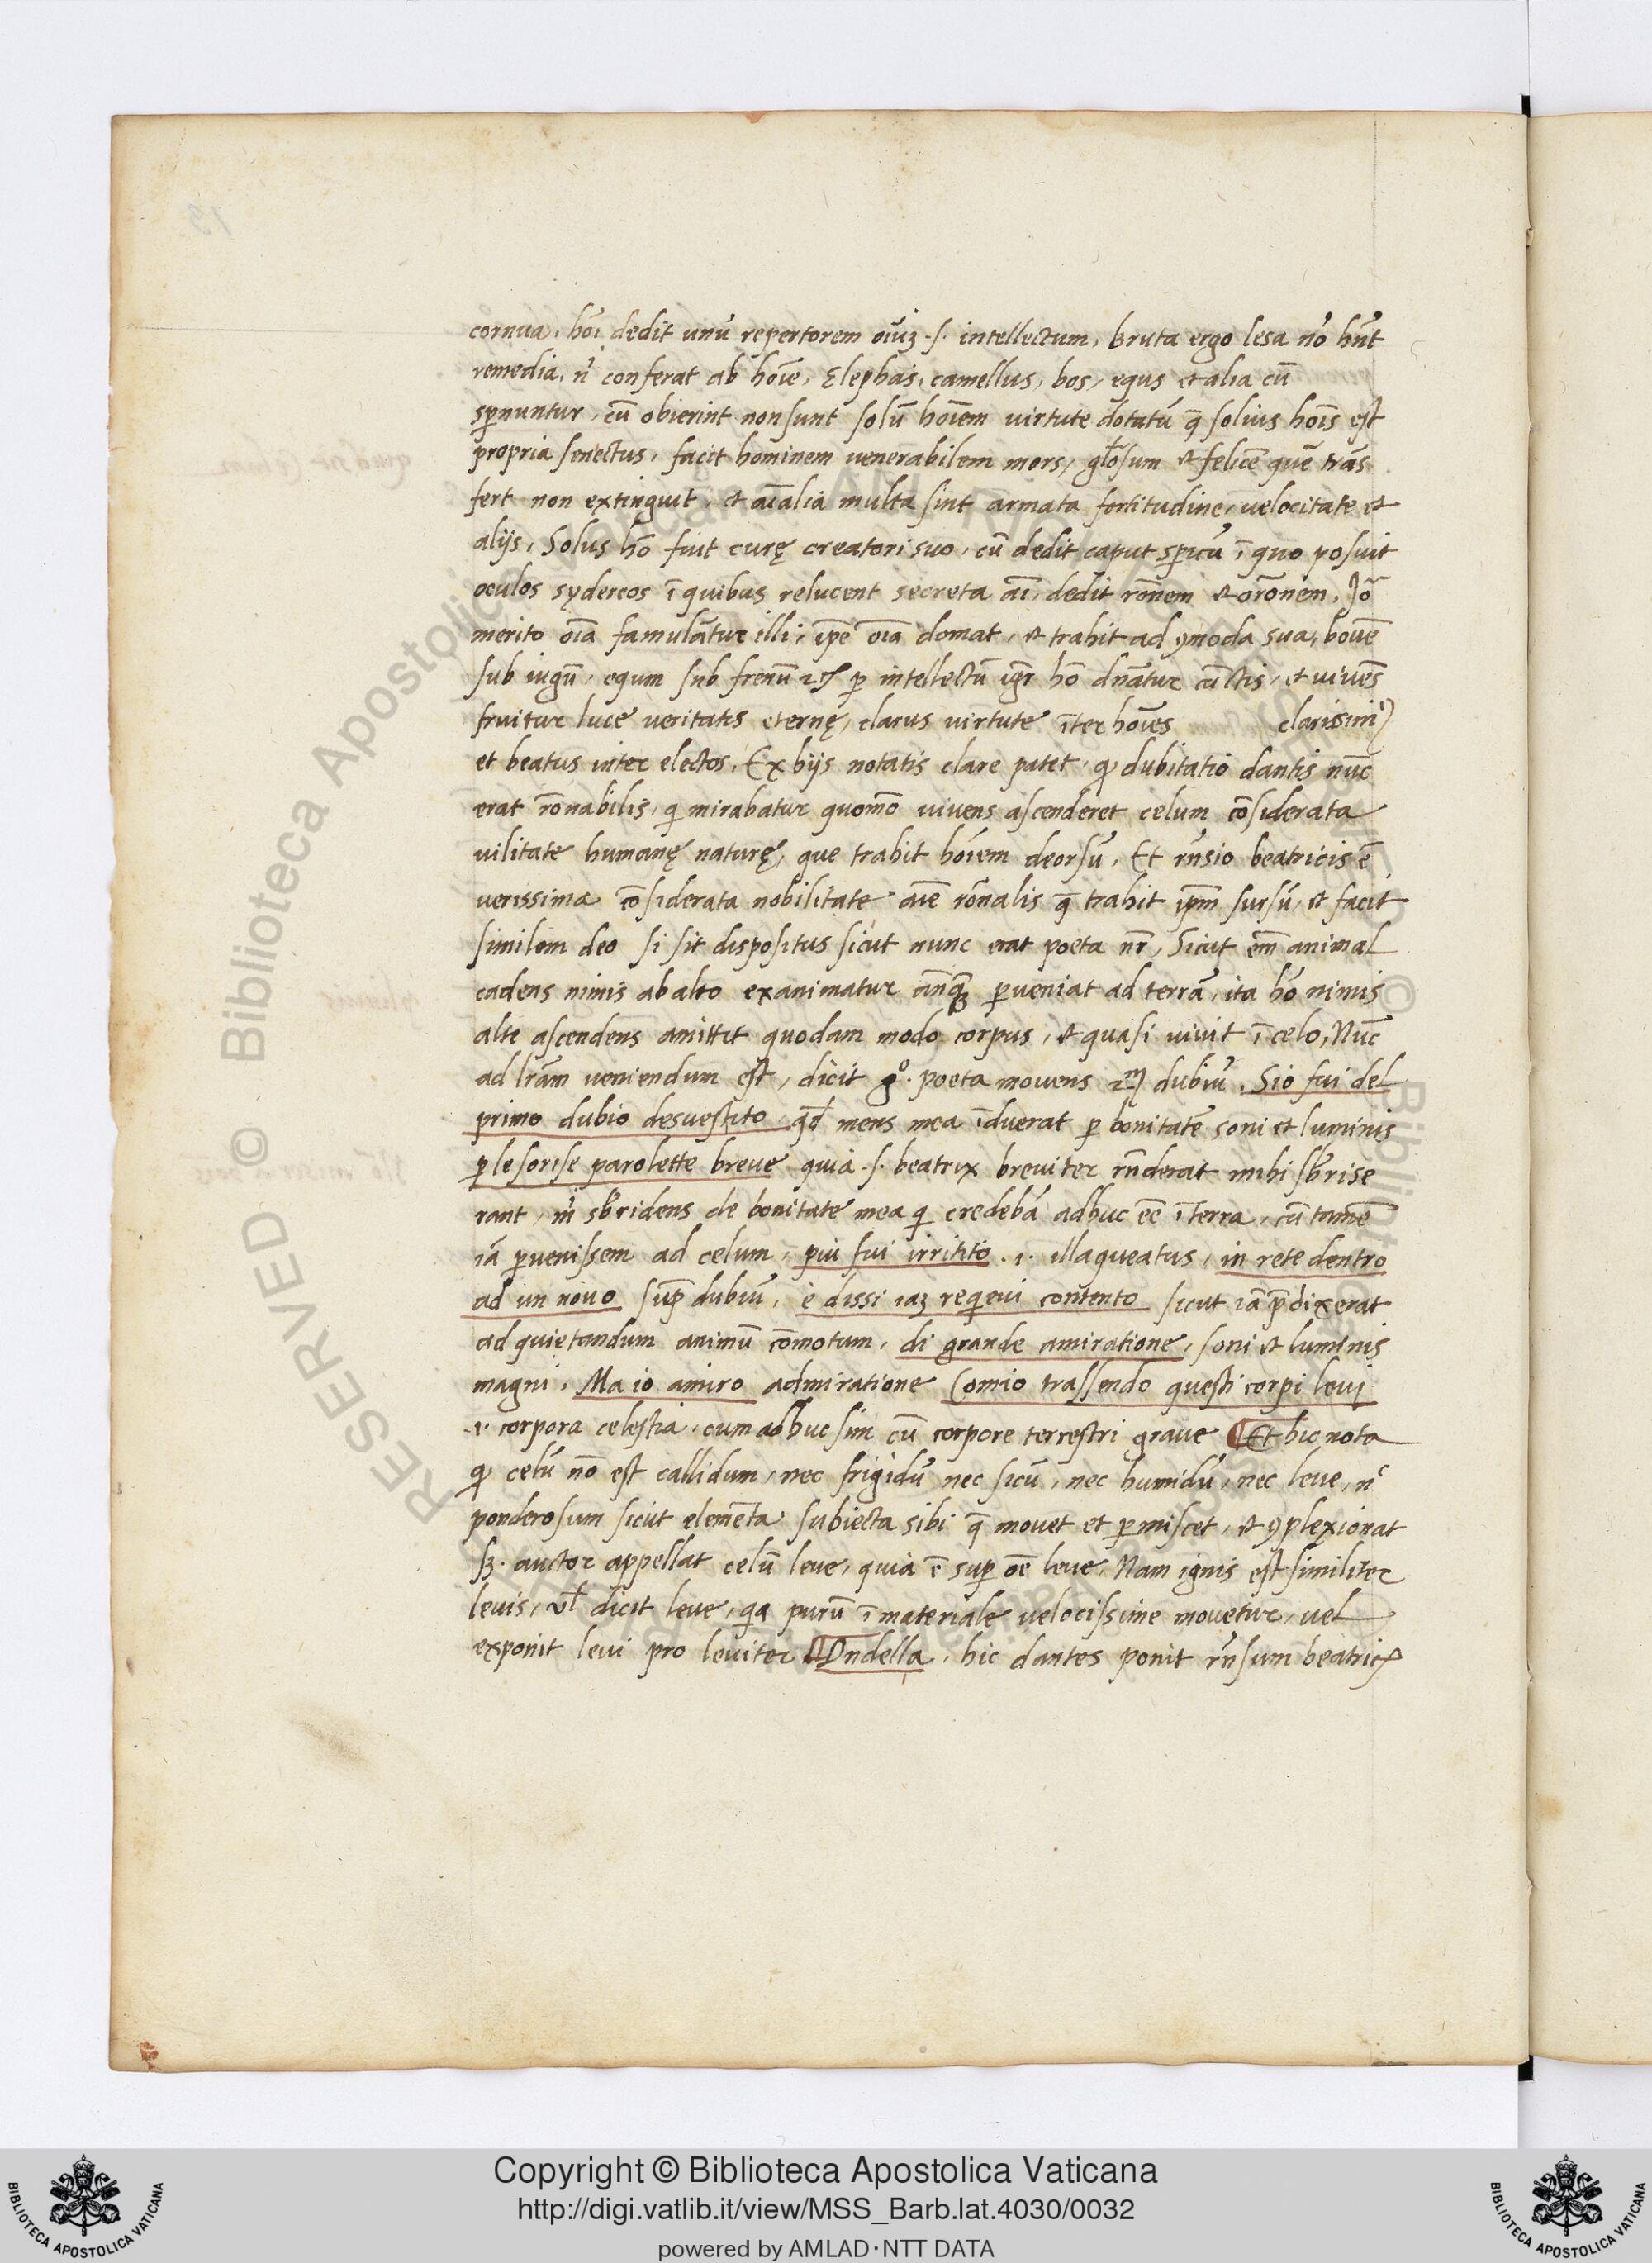 cornua, hoı̄ dedit unū repertorem oı̄uꝫ .s. intellectum, bruta ergo lesa nō hn̄t
remedia, nͥ conferat ab hoı̄e, Elephas, camellus, bos, equs et alia cū
sp̄nuntur, cū obierint non sunt solū hoı̄em virtute dotatū q̄ solius hoı̄s est
propria senectus, facit hominem venerabilem mors, gl̄osum et felicē quē trās
fert non extinguit, et aı̄alia multa sint armata fortitudine, velocitate et
alijs, Solus hō fuit curę creatori suo, cū dedit caput spicū ī quo posuit
oculos sydereos ī quibus relucent secreta aı̄, dedit rōnem et orōnem, Jō
merito oı̄a famulātur illi, ip̄e oı̄a domat, et trahit ad ꝯmoda sua, bovē
sub iugū, equm sub frenū ⁊c̄ ꝑ intellectū igr̄ hō dn̄atur cūctis, et vivēs
fruitur luce veritatis eternę, clarus virtute īter hoı̄es clarissimꝰ
et beatus inter electos, Ex hijs notatis clare patet, ꝙ dubitatio dantis nūc
erat rōnabilis, qͥ mirabatur quomō vivens ascenderet celum cōsiderata
vilitate humanę naturę, que trahit hoı̄em deorsū, Et rn̄sio beatricis ē
verissima cōsiderata nobilitate aı̄e rōnalis q̄ trahit ip̄m sursū, et facit
similem deo si sit dispositus sicut nunc erat poeta nr̄, Sicut em̄ animal
cadens nimis ab alto exanimatur an̄qꝫ ꝑveniat ad terrā, ita hō nimis
alte ascendens amittit quodam modo corpus, et quasi vivit ī celo, Nūc
ad lr̄am veniendum est, dicit gͦ. poeta movens 2m̄ dubiū, Sio fui del
primo dubio desvestito qd̄ mens mea īduerat ꝑ bonitatē soni et luminis
ꝑ le sorise parolette breve quia .s. beatrix breviter rn̄derat mihi sb̄rise
rant, nͥ sb̄ridens de bonitate mea qͥ credebā adhuc eē ī terra, cū tamē
iā ꝑvenissem ad celum, piu fui irritito .i. illaqueatus, in rete dentro
ad un novo sup̄ dubiū, e dissi iaꝫ requievi contento sicut iā p̄dixerat
ad quietandum animū cōmotum, di grande amiratione, soni et luminis
magni, Ma io amiro admiratione Comio trassendo questi corpi levi
.i. corpora celestia, cum adhuc sim cū corpore terrestri grave ¶ Et hic nota
ꝙ celū nō est callidum, nec frigidū nec sicū, nec humidū, nec leve, nͨ
ponderosum sicut elemēta subiecta sibi q̄ movet et ꝑmiscet, et ꝯplexionat
sꝫ. auctor appellat celū leve, quia ē suꝑ oē leve, Nam ignis est similiter
levis, vl̄ dicit leve, qͣ purū īmateriale velocissime movetur, vel
exponit levi pro leviter ¶ Ondella, hic dantes ponit rn̄sum beatricꝭ
Copyright © Biblioteca Apostolica Vaticana
http://digi.vatlib.it/view/MSS_Barb.lat.4030/0032
powered by AMLAD·NTT DATA